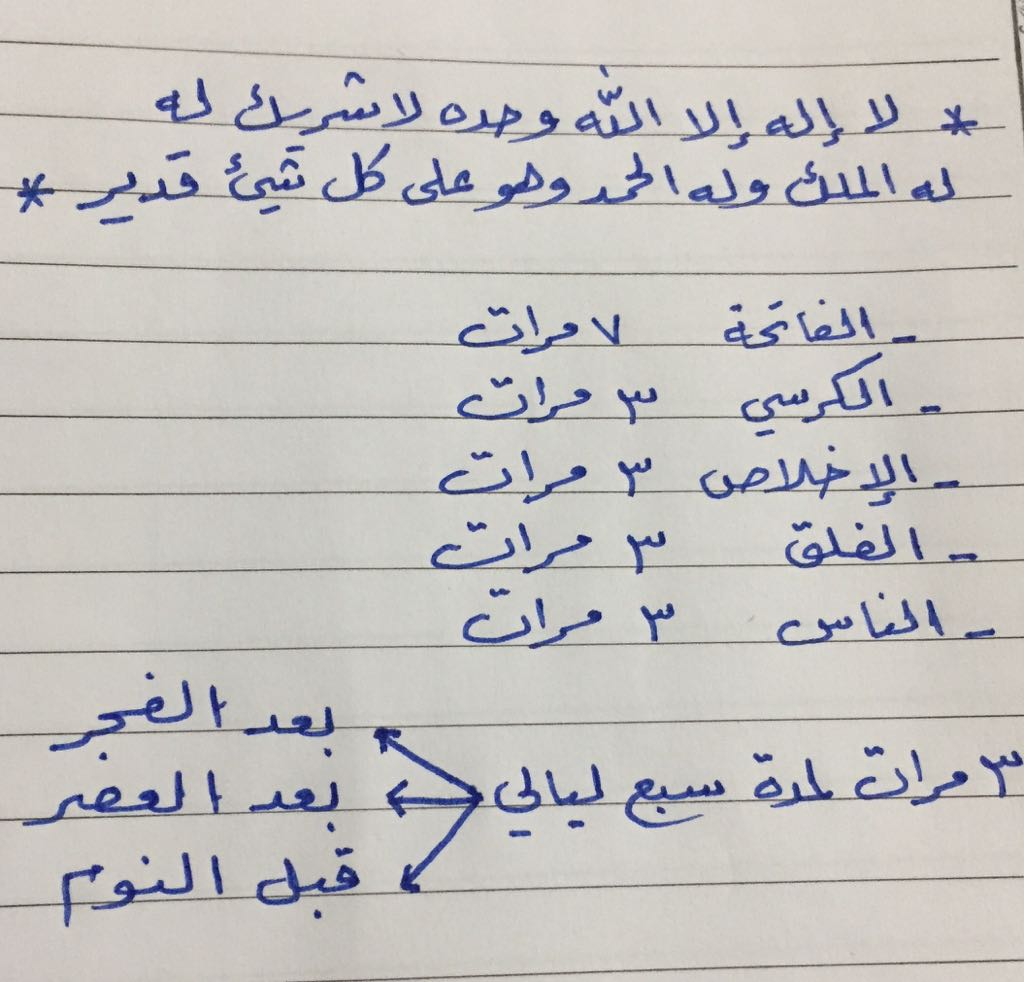 * لا إله إلا الله وحده لا شريك له
له الملك وله الحمد وهو على كل شيئ قدير *
- الفاتحة ٧ مرات
- الكرسي ٣ مرات
- الإخلاص ٣ مرات
- الفلق ٣ مرات
- الناس ٣ مرات
٣ مرات لمدة سبع ليالي
بعد الفجر
بعد العصر
قبل النوم